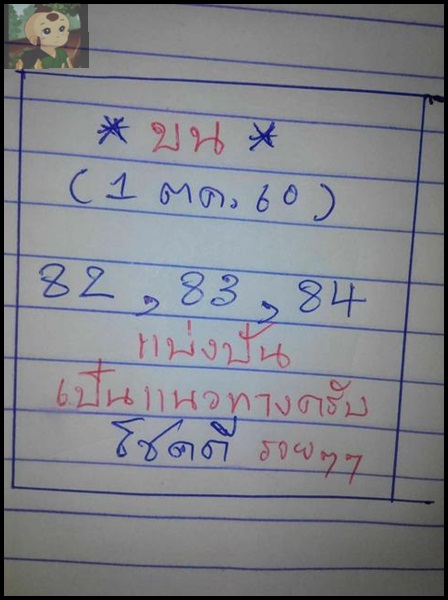 * บน *
(1 ตค. 60)
82, 83, 84
แบ่งปัน
เป็นแนวทางครับ
โชคดี รวยๆๆ